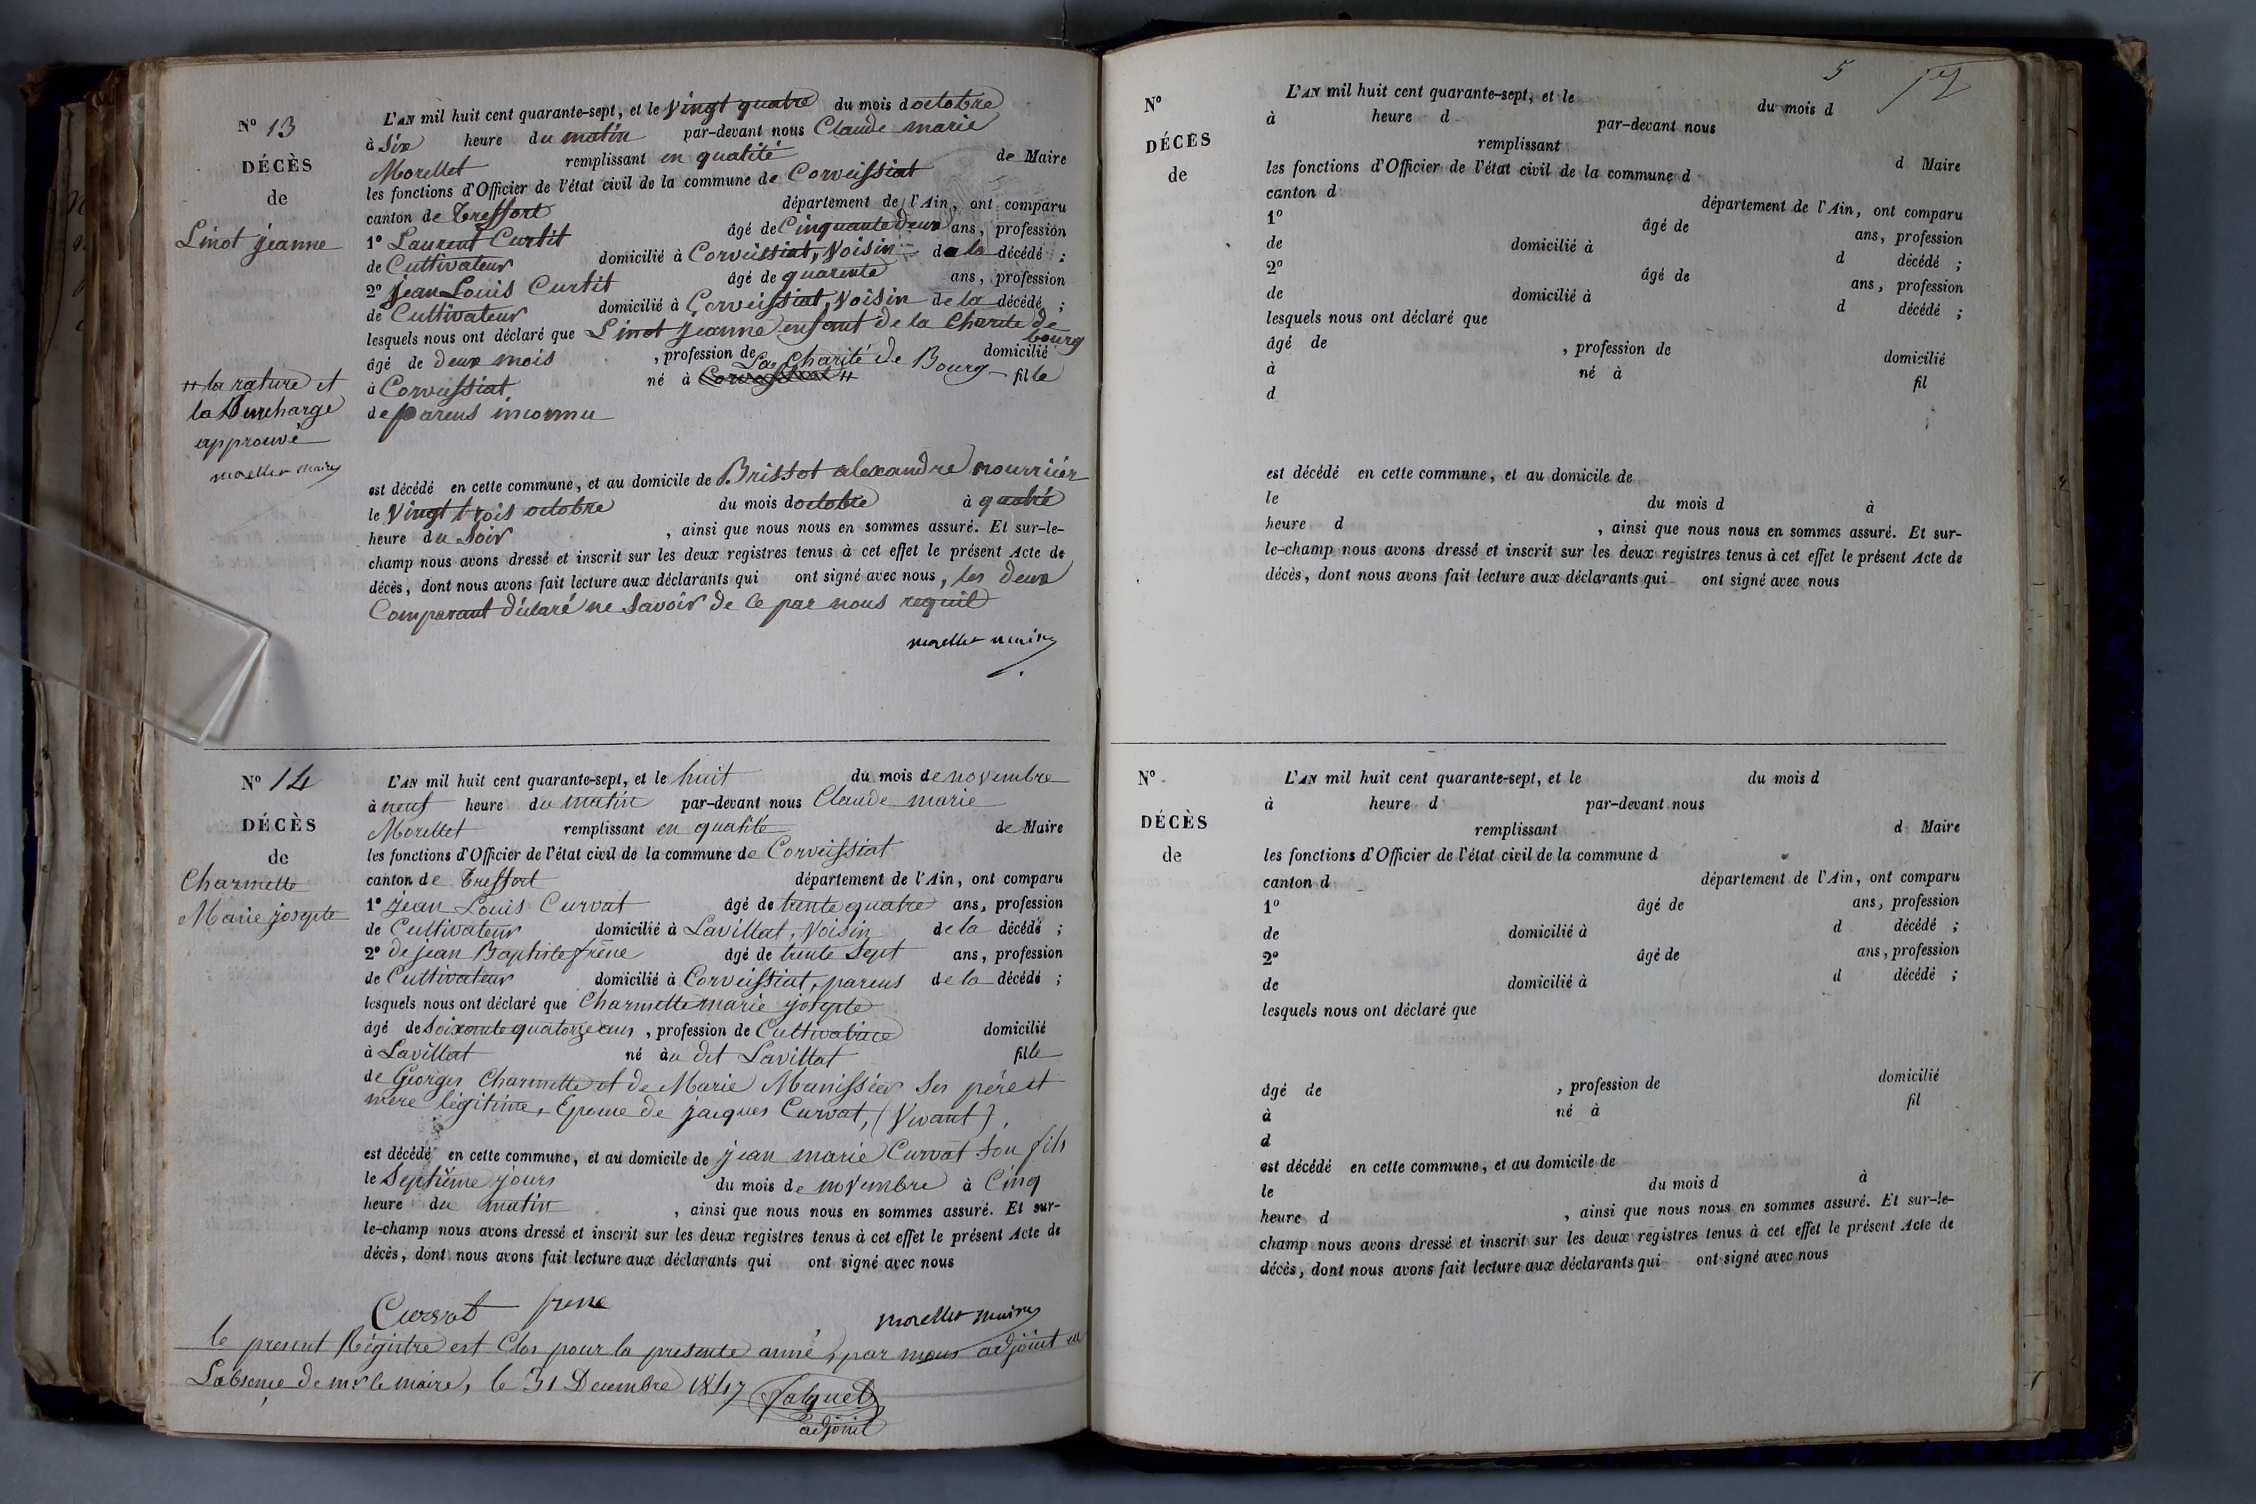 N° 13
DÉCÈS
de
Linot jeanne
++ la rature et
la Surcharge
approuvé
morellet maire
L'AN mil huit cent quarante-sept, et le Vingt quatre du mois d octobre
à Six heure du matin par-devant nous Claude marie
Morellet remplissant en qualité de Maire
les fonctions d'Officier de l'état civil de la commune de Corveissiat
canton de Treffort département de l'Ain, ont comparu
1° Laurent Curtit âgé de Cinquante deux ans, profession
de Cultivateur domicilié à Corveissiat, Voisin de la décédé ;
2° Jean Louis Curtit âgé de quarente ans, profession
de Cultivateur domicilié à Corveissiat, Voisin de la décédé ;
lesquels nous ont déclaré que Linot Jeanne enfant de la Charité de
bourg
âgé de deux mois , profession de domicilié
La Charité de Bourg
à Corveissiat né à Corveissiat ++ fille
de parens inconnu
est décédé en cette commune, et au domicile de Brissot alexandre nourriier
le Vingt trois octobre du mois d octobre à quatre
heure du Soir , ainsi que nous nous en sommes assuré. Et sur-le-
champ nous avons dressé et inscrit sur les deux registres tenus à cet effet le présent Acte de
décès, dont nous avons fait lecture aux déclarants qui ont signé avec nous, les deux
Comparant déclaré ne Savoir de ce par nous requit
morellet maire
N° 14
DÉCÈS
de
Charmette
Marie josepte
L'AN mil huit cent quarante-sept, et le huit du mois de novembre
à neuf heure du matin par-devant nous Claude marie
Morellet remplissant en qualité de Maire
les fonctions d'Officier de l'état civil de la commune de Corveissiat
canton de Treffort département de l'Ain, ont comparu
1° Jean Louis Curvat âgé de trente quatre ans, profession
de Cultivateur domicilié à Lavillat, Voisin de la décédé ;
2° de jean Baptiste frêne âgé de trente Sept ans, profession
de Cultivateur domicilié à Corveissiat, parens de la décédé ;
lesquels nous ont déclaré que Charmette marie josepte
âgé de Soixante quatorze ans , profession de Cultivatrice domicilié
à Lavillat né au dit Lavillat fille
de Georges Charmette et de Marie Manissier Ses père et
mère légitime, Epouse de jacques Curvat, (Vivant),
est décédé en cette commune, et au domicile de jean marie Curvat Son fils
le Septième jours du mois de novembre à Cinq
heure du matin , ainsi que nous nous en sommes assuré. Et sur-
le-champ nous avons dressé et inscrit sur les deux registres tenus à cet effet le présent Acte de
décès, dont nous avons fait lecture aux déclarants qui ont signé avec nous
Curvat frene morellet maire
le present Régistre est Clos pour la presente année, par nous adjoint en
Labsence de mr le maire, le 31 Decembre 1847 Falquet
adjoint
5
N°
DÉCÈS
de
L'AN mil huit cent quarante-sept, et le du mois d
à heure d par-devant nous
remplissant d Maire
les fonctions d'Officier de l'état civil de la commune d
canton d département de l'Ain, ont comparu
1° âgé de ans, profession
de domicilié à d décédé ;
2° âgé de ans, profession
de domicilié à d décédé ;
lesquels nous ont déclaré que
âgé de , profession de domicilié
à né à fil
d
est décédé en cette commune, et au domicile de
le du mois d à
heure d , ainsi que nous nous en sommes assuré. Et sur-
le-champ nous avons dressé et inscrit sur les deux registres tenus à cet effet le présent Acte de
décès, dont nous avons fait lecture aux déclarants qui ont signé avec nous
N°
DÉCÈS
de
L'AN mil huit cent quarante-sept, et le du mois d
à heure d par-devant nous
remplissant d Maire
les fonctions d'Officier de l'état civil de la commune d
canton d département de l'Ain, ont comparu
1° âgé de ans, profession
de domicilié à d décédé ;
2° âgé de ans, profession
de domicilié à d décédé ;
lesquels nous ont déclaré que
âgé de , profession de domicilié
à né à fil
d
est décédé en cette commune, et au domicile de
le du mois d à
heure d , ainsi que nous nous en sommes assuré. Et sur-le-
champ nous avons dressé et inscrit sur les deux registres tenus à cet effet le présent Acte de
décès, dont nous avons fait lecture aux déclarants qui ont signé avec nous